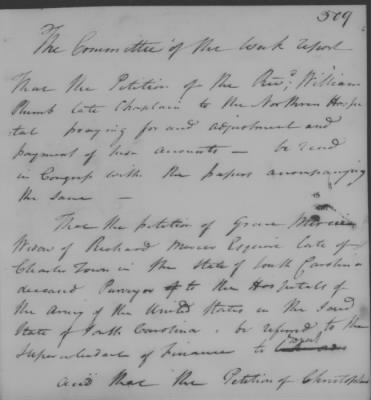 509
The Committee of the Week report
That the Petition of the Revd; William
Plumb late Chaplain to the Northern Hospi
tal praying for and adjustment and
payment of his accounts — be read
in Congress with the papers accompanying
the same —
That the petition of Grace Mercier
Widow of Richard Mercier Esquire late of
Charles Town in the State of South Carolina
deceased Purveyor to the Hospitals of
the Army of the United States in the said
State of South Carolina. be refered to the
Superintendent of Finance to
and that the Petition of Christopher